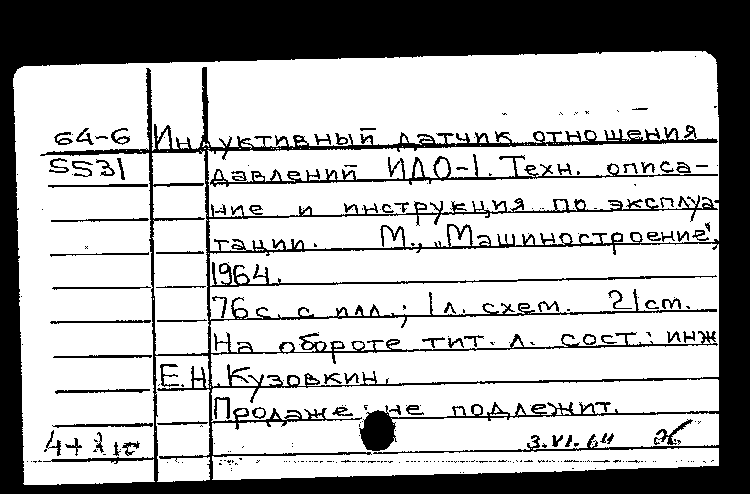 64-6 Индуктивный датчик отношения
5531 давлений ИДО-1. Техн. описа-
ние и инструкция по эксплуа-
тации. М., „Машиностроение",
1964.
76с. с илл.; 1л. схем. 21см.
На обороте тит. л. сост.: инж
Е.Н. Кузовкин.
Продаже не подлежит.
3.VI.64